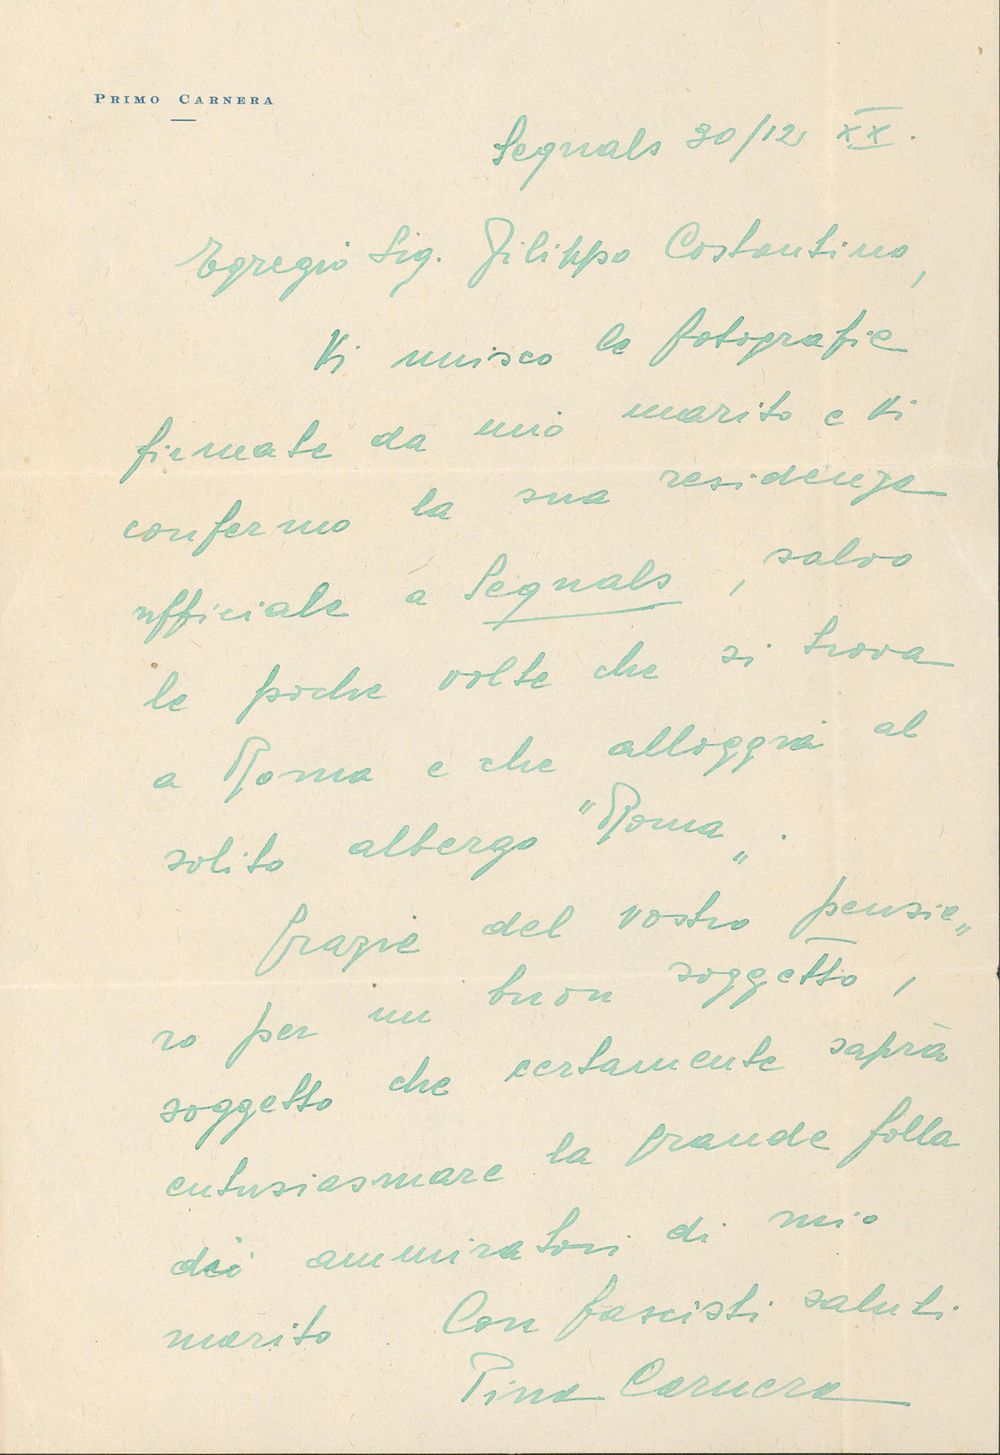 PRIMO CARNERA
Sequals 30/12, XX.
Egregio Sig. Filippo Costantino,
Vi unisco le fotografie
firmate da mio marito e Vi
confermo la sua residenza
ufficiale a Sequals, salvo
le poche volte che si trova
a Roma e che alloggia al
solito albergo "Roma„.
Grazie del vostro pensie„
ro per un buon soggetto,
soggetto che certamente saprà
entusiasmare la grande folla
di ammiratori di mio
marito Con fascisti saluti
Pina Carnera